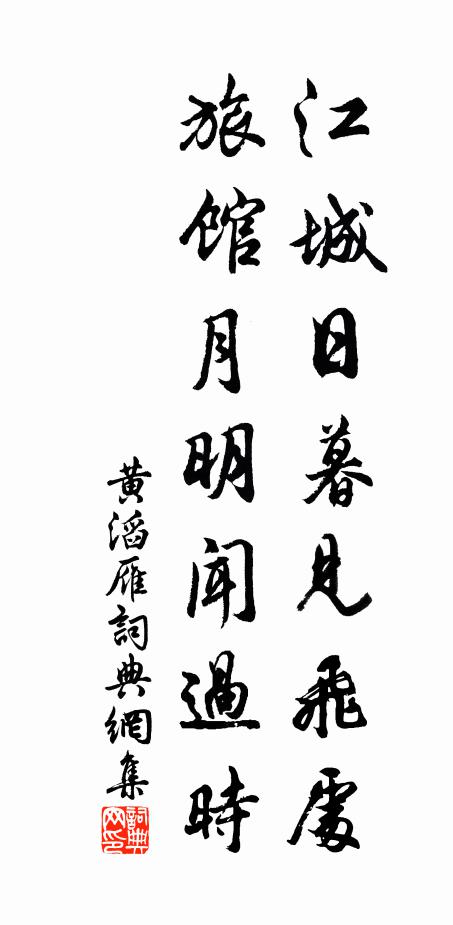 江城日暮見飛處
旅館月明聞過時
黃滔雁詞典網集
詞典網印